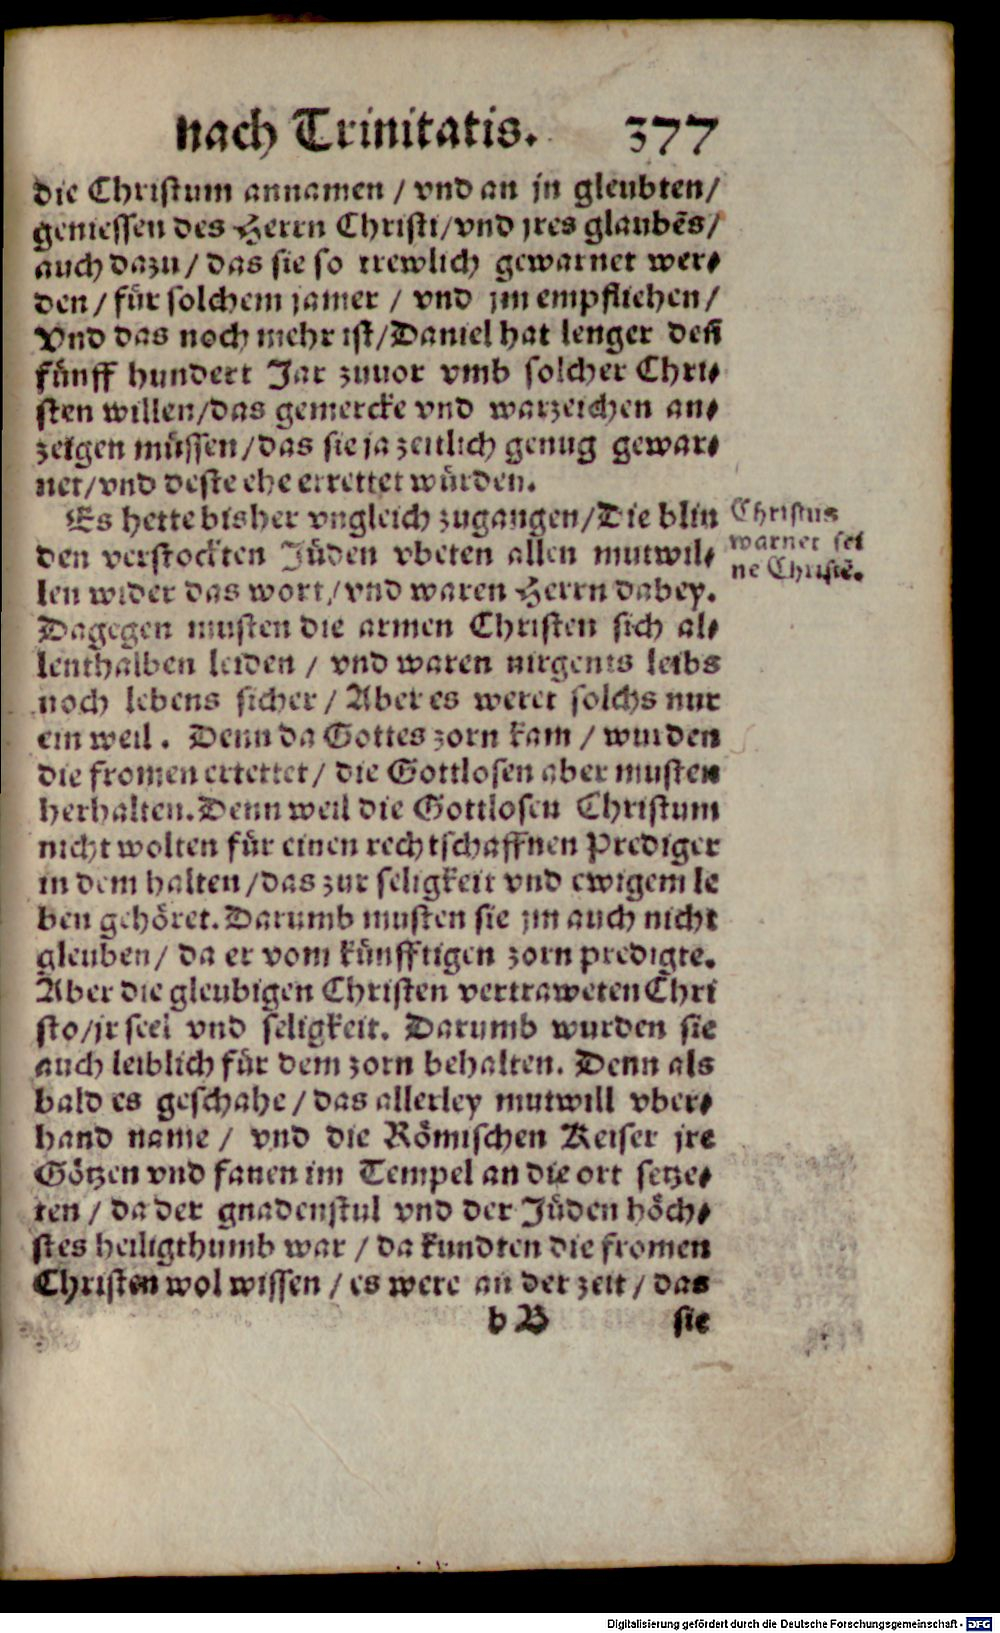 nach Trinitatis. 377
die Christum annamen / vnd an jn gleubten/
geniessen des Herrn Christi/vnd jres glaubẽs/
auch dazu / das sie so trewlich gewarnet wer⸗
den / für solchem jamer / vnd jm empfliehen /
Vnd das noch mehr ist/Daniel hat lenger deñ
fünff hundert Jar zuuor vmb solcher Chri⸗
sten willen/das gemercke vnd warzeichen an⸗
zeigen müssen/das sie ja zeitlich genug gewar⸗
net/vnd deste ehe errettet würden.
Es hette bisher vngleich zugangen/Die blin
den verstockten Jüden vbeten allen mutwil⸗
len wider das wort/vnd waren Herrn dabey.
Dagegen musten die armen Christen sich al⸗
lenthalben leiden / vnd waren nirgents leibs
noch lebens sicher / Aber es weret solchs nur
ein weil. Denn da Gottes zorn kam / wurden
die fromen errettet / die Gottlosen aber musten
herhalten. Denn weil die Gottlosen Christum
nicht wolten für einen rechtschaffnen Prediger
in dem halten/das zur seligkeit vnd ewigem le
ben gehöret. Darumb musten sie jm auch nicht
gleuben / da er vom künfftigen zorn predigte.
Aber die gleubigen Christen vertraweten Chri
sto/jr seel vnd seligkeit. Darumb wurden sie
auch leiblich für dem zorn behalten. Denn als
bald es geschahe / das allerley mutwill vber⸗
hand name / vnd die Römischen Keiser jre
Götzen vnd fanen im Tempel an die ort setze⸗
ten / da der gnadenstul vnd der Jüden höch⸗
stes heiligthumb war / da kundten die fromen
Christen wol wissen / es were an der zeit / das
b B sie
Christus
warnet sei
ne Christẽ.
Digitalisierung gefördert durch die Deutsche Forschungsgemeinschaft - DFG